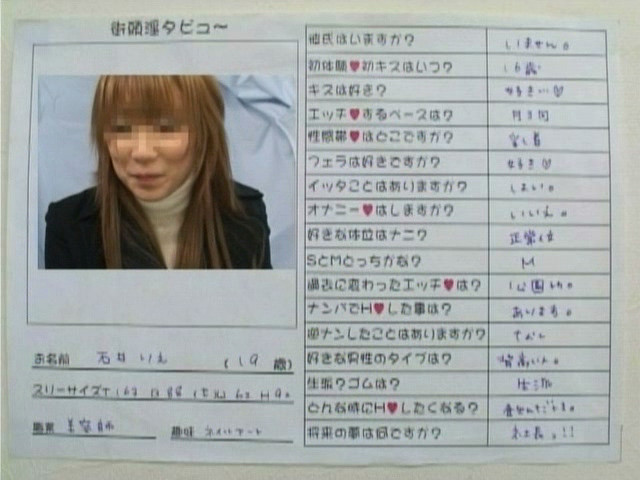 街頭淫タビュ～
彼氏はいますか? いません。
初体験♥初キスはいつ? 16歳
キスは好き? 好き…♡
エッチ♥するペースは? 月3回
性感帯♥はどこですか?
フェラは好きですか? 好き♡
イッタことはありますか? はい。
オナニー♥はしますか? いいえ。
好きな体位はナニ? 正常位
SとMどっちかな? M
過去に変わったエッチ♥は? 公園
ナンパでH♥した事は? あります。
逆ナンしたことはありますか? ない
好きな男性のタイプは?
生派?ゴムは? 生派
どんな時にH♥したくなる?
将来の夢は何ですか? 社長っ!!
お名前 石井 りえ (19歳)
スリーサイズ T163 B88 W62 H90
職業 美容師 趣味 ネイルアート